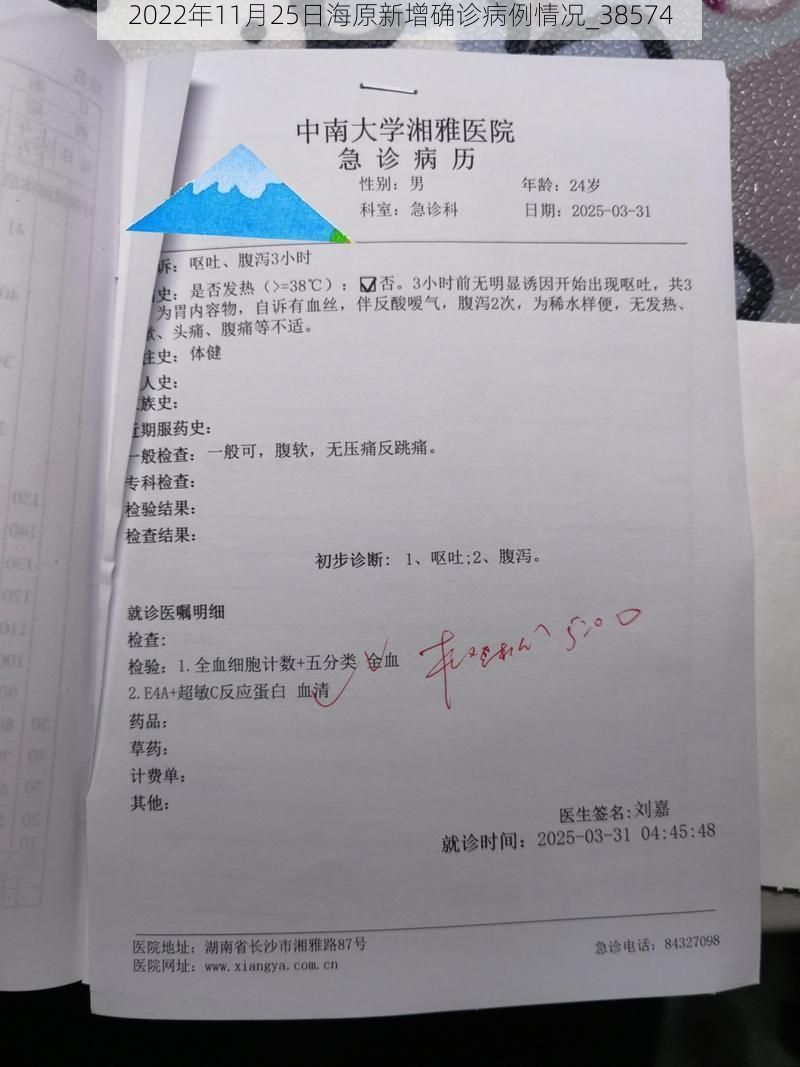 2022年11月25日海原新增确诊病例情况_38574
中南大学湘雅医院
急诊病历
性别：男 年龄：24岁
科室：急诊科 日期：2025-03-31
诉：呕吐、腹泻3小时
史：是否发热（>=38℃）：☑否。3小时前无明显诱因开始出现呕吐，共3
为胃内容物，自诉有血丝，伴反酸嗳气，腹泻2次，为稀水样便，无发热、
、头痛、腹痛等不适。
史：体健
人史：
族史：
近期服药史：
一般检查：一般可，腹软，无压痛反跳痛。
专科检查：
检验结果：
检查结果：
初步诊断：1、呕吐;2、腹泻。
就诊医嘱明细
检查：
检验：1.全血细胞计数+五分类 全血
2.E4A+超敏C反应蛋白 血清
5:00
药品：
草药：
计费单：
其他：
医生签名:刘嘉
就诊时间：2025-03-31 04:45:48
医院地址：湖南省长沙市湘雅路87号 急诊电话：84327098
医院网址：www.xiangya.com.cn